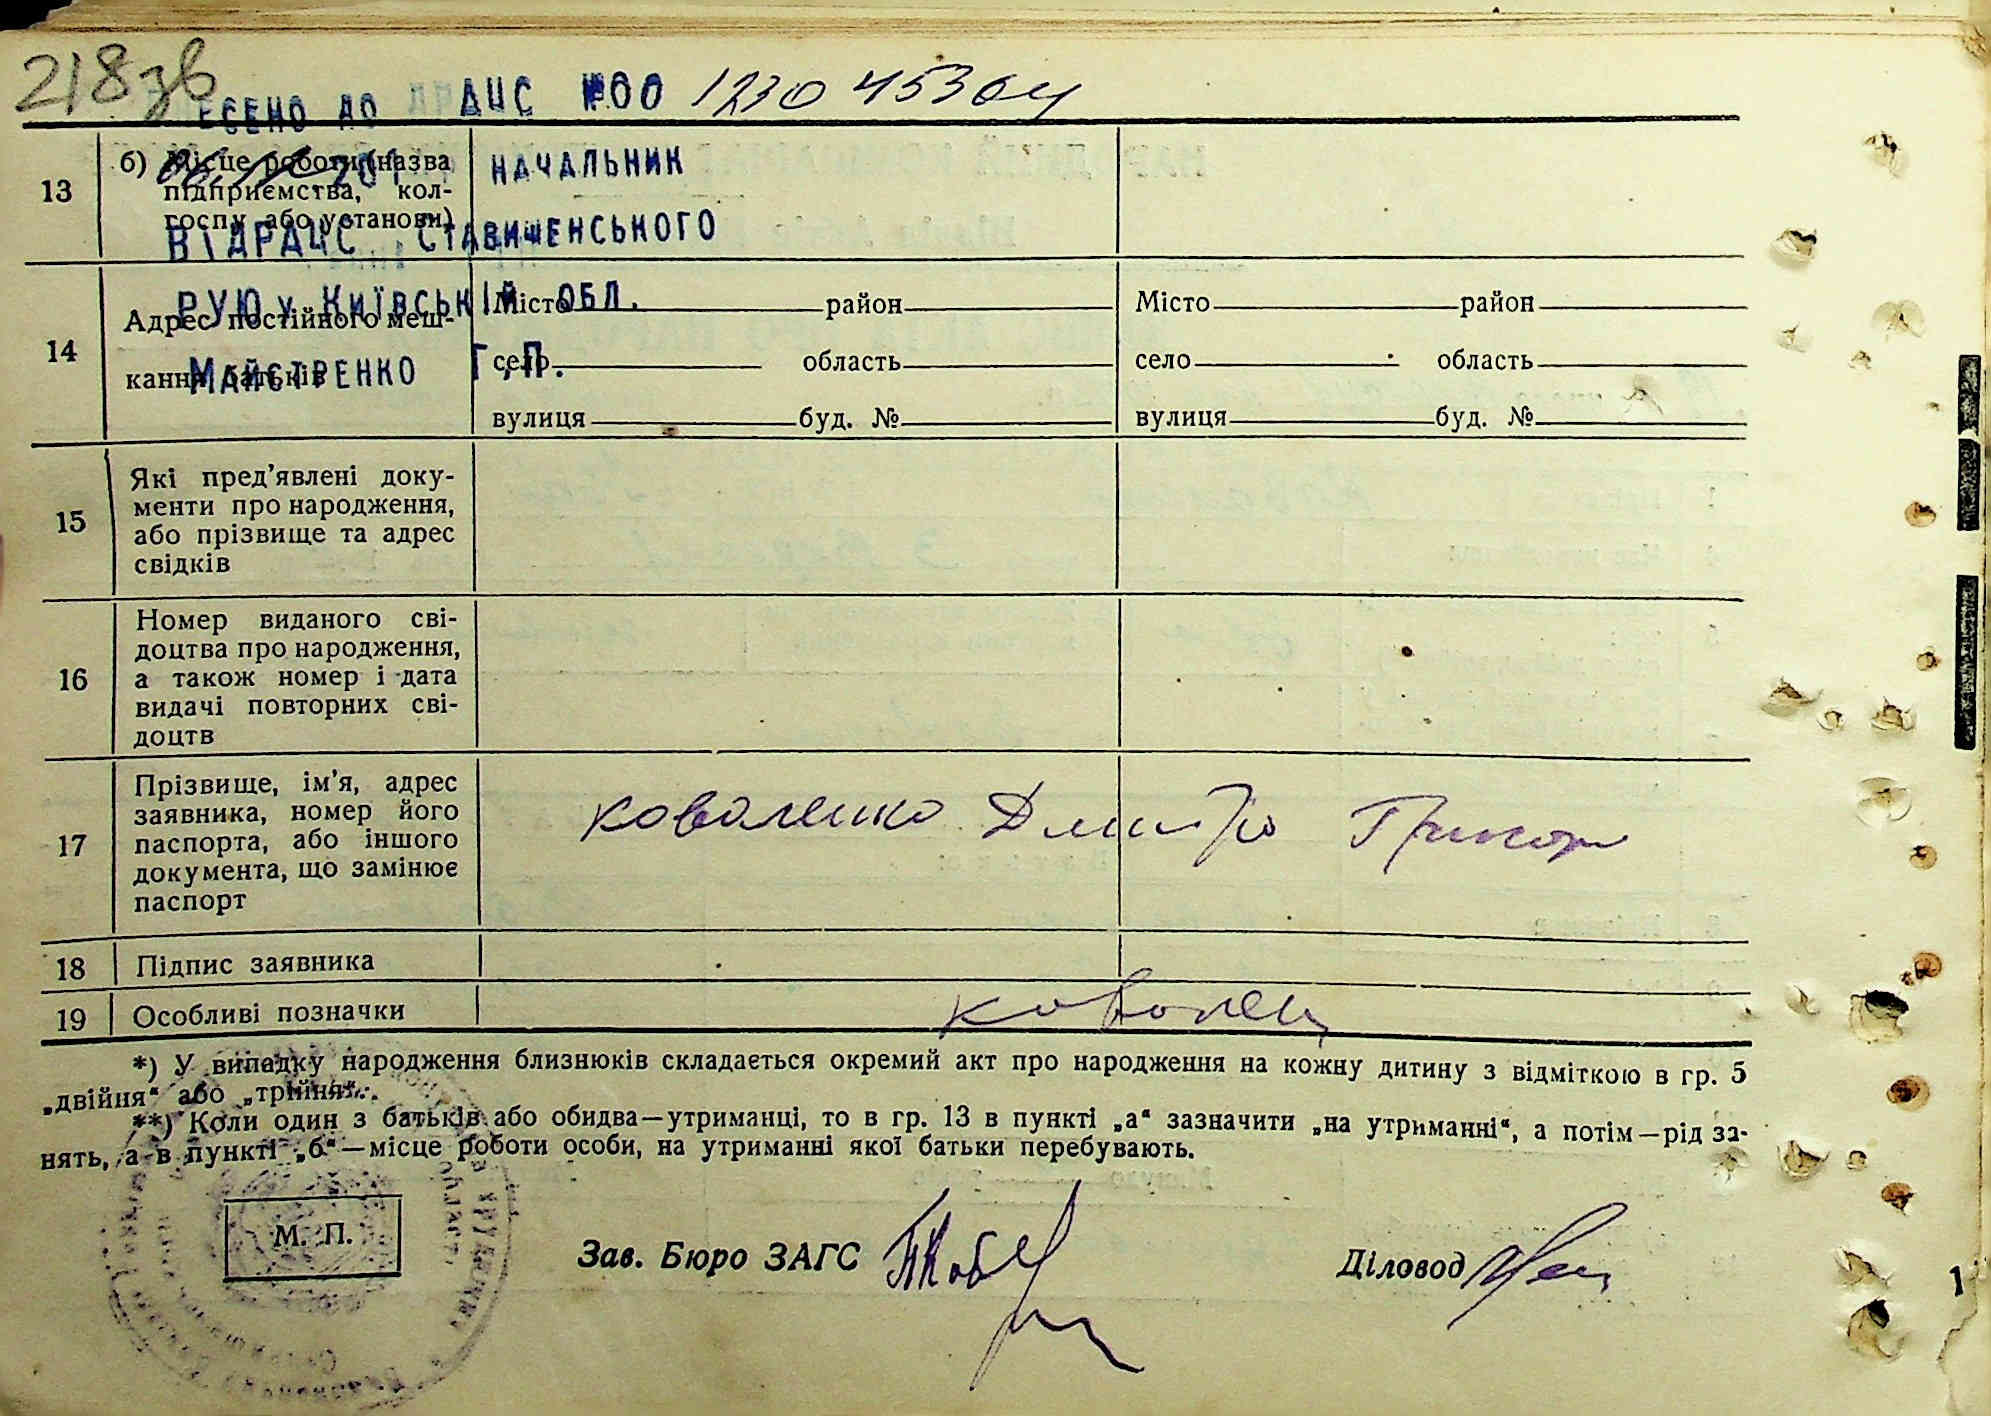 218 зв
ЕСЕНО ДО ДРАЦС №00 1230 45304
13
б) Місце роботи (назва
підприємства, кол-
госпу або установи)
НАЧАЛЬНИК
ВІДРАЦС СТАВИЩЕНСЬКОГО
РУЮ у КИЇВСЬКІЙ ОБЛ.
МАЙСТРЕНКО Г.П.
14
Адрес постійного меш-
кання батьків
Місто район Місто район
село область село область
вулиця буд. № вулиця буд. №
15
Які пред’явлені доку-
менти про народження,
або прізвище та адрес
свідків
16
Номер виданого сві-
доцтва про народження,
а також номер і дата
видачі повторних сві-
доцтв
17
Прізвище, ім’я, адрес
заявника, номер його
паспорта, або іншого
документа, що замінює
паспорт
Коваленко Дмитро Григор
18 Підпис заявника
19 Особливі позначки
Ковален
*) У випадку народження близнюків складається окремий акт про народження на кожну дитину з відміткою в гр. 5
„двійня“ або „трійня“.
**) Коли один з батьків або обидва—утриманці, то в гр. 13 в пункті „а“ зазначити „на утриманні“, а потім—рід за-
нять, а в пункті „б“—місце роботи особи, на утриманні якої батьки перебувають.
М. П.
Зав. Бюро ЗАГС
Діловод
1